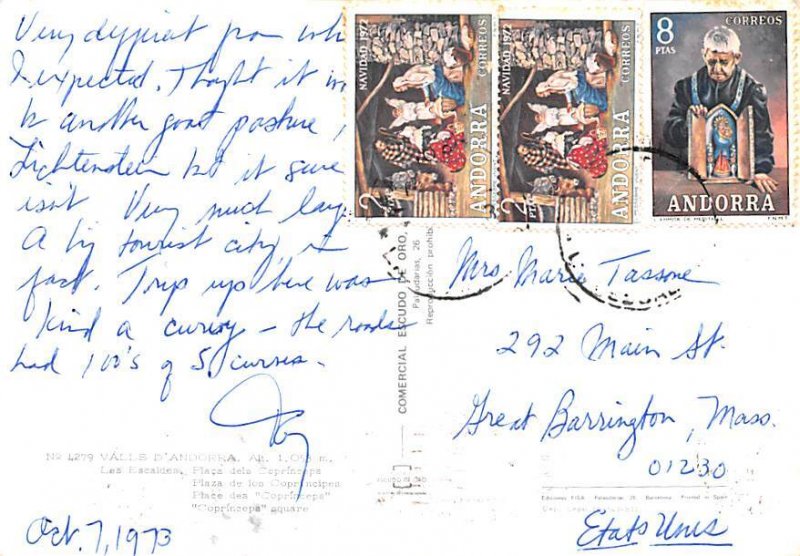 Very different from wh
I expected. Thought it w
be another goat pasture,
Lichtenstein but it sure
isn't. Very much larg
A big tourist city, in
fact. Trip up here was
kind a curvy – the roads
had 100's of S curves.
Nº 4279 VALLS D'ANDORRA. Alt. 1,0 m.
Les Escaldes. Plaça dels Coprínceps
Plaza de los Copríncipes
Place des "Coprínceps"
"Coprínceps" square
Oct. 7, 1973
COMERCIAL ESCUDO DE ORO,
Palaudarias, 26
Reproducción prohib
NAVIDAD 1972
CORREOS
2 PTAS
ANDORRA
NAVIDAD 1972
CORREOS
2 PTAS
ANDORRA
CORREOS
8
PTAS
ANDORRA
F.N.M.T.
Mrs Marie Tassone
292 Main St.
Great Barrington, Mass.
01230
Etats Unis